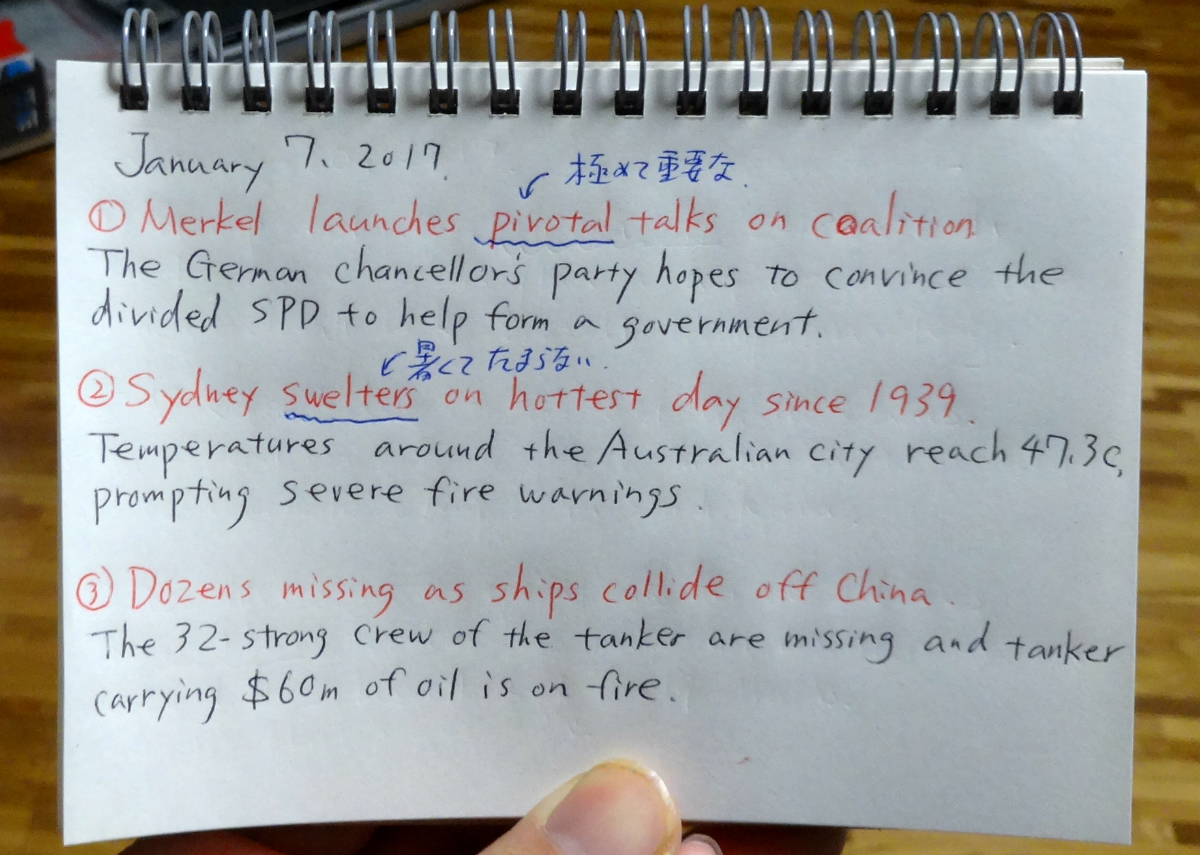 January 7, 2017.
極めて重要な.
① Merkel launches pivotal talks on coalition.
The German chancellor's party hopes to convince the
divided SPD to help form a government.
暑くてたまらない.
② Sydney swelters on hottest day since 1939.
Temperatures around the Australian city reach 47.3c,
prompting severe fire warnings.
③ Dozens missing as ships collide off China.
The 32-strong crew of the tanker are missing and tanker
carrying $60m of oil is on fire.